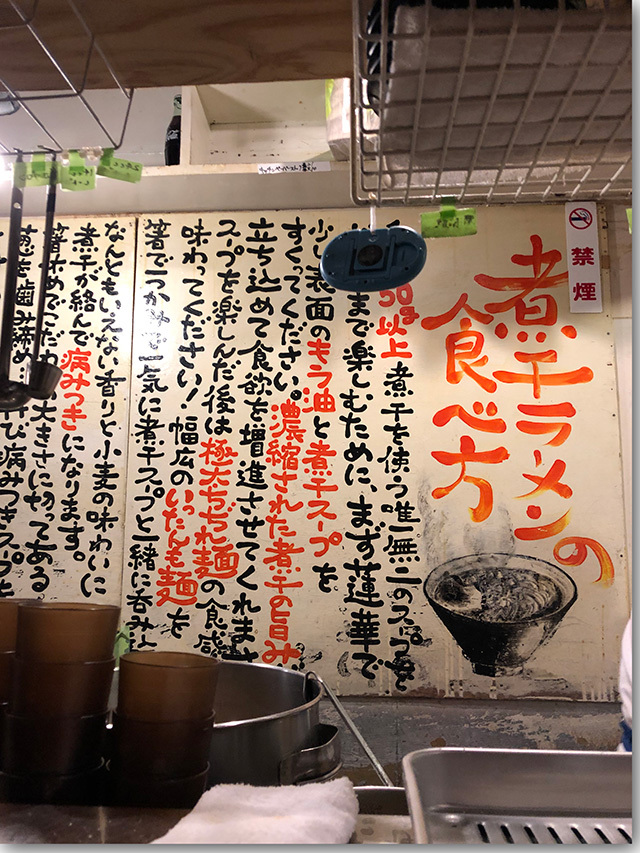 煮干ラーメンの
食べ方
禁煙
50g以上煮干を使う唯一無二のスープを
まで楽しむために、まず蓮華で
少し表面のもう油と煮干スープを
すくってください。濃縮された煮干の旨み
立ち込めて食欲を増進させてくれます
スープを楽しんだ後は極太ちぢれ麺の食感
味わってください!幅広のいったんも麺を
箸でつかんで一気に煮干スープと一緒に呑み
なんともいえない香りと小麦の味わいに
煮干が絡んで病みつきになります。
箸休めでこだわ 大きさに切ってある
葱を歯み締め び病みつきスープと